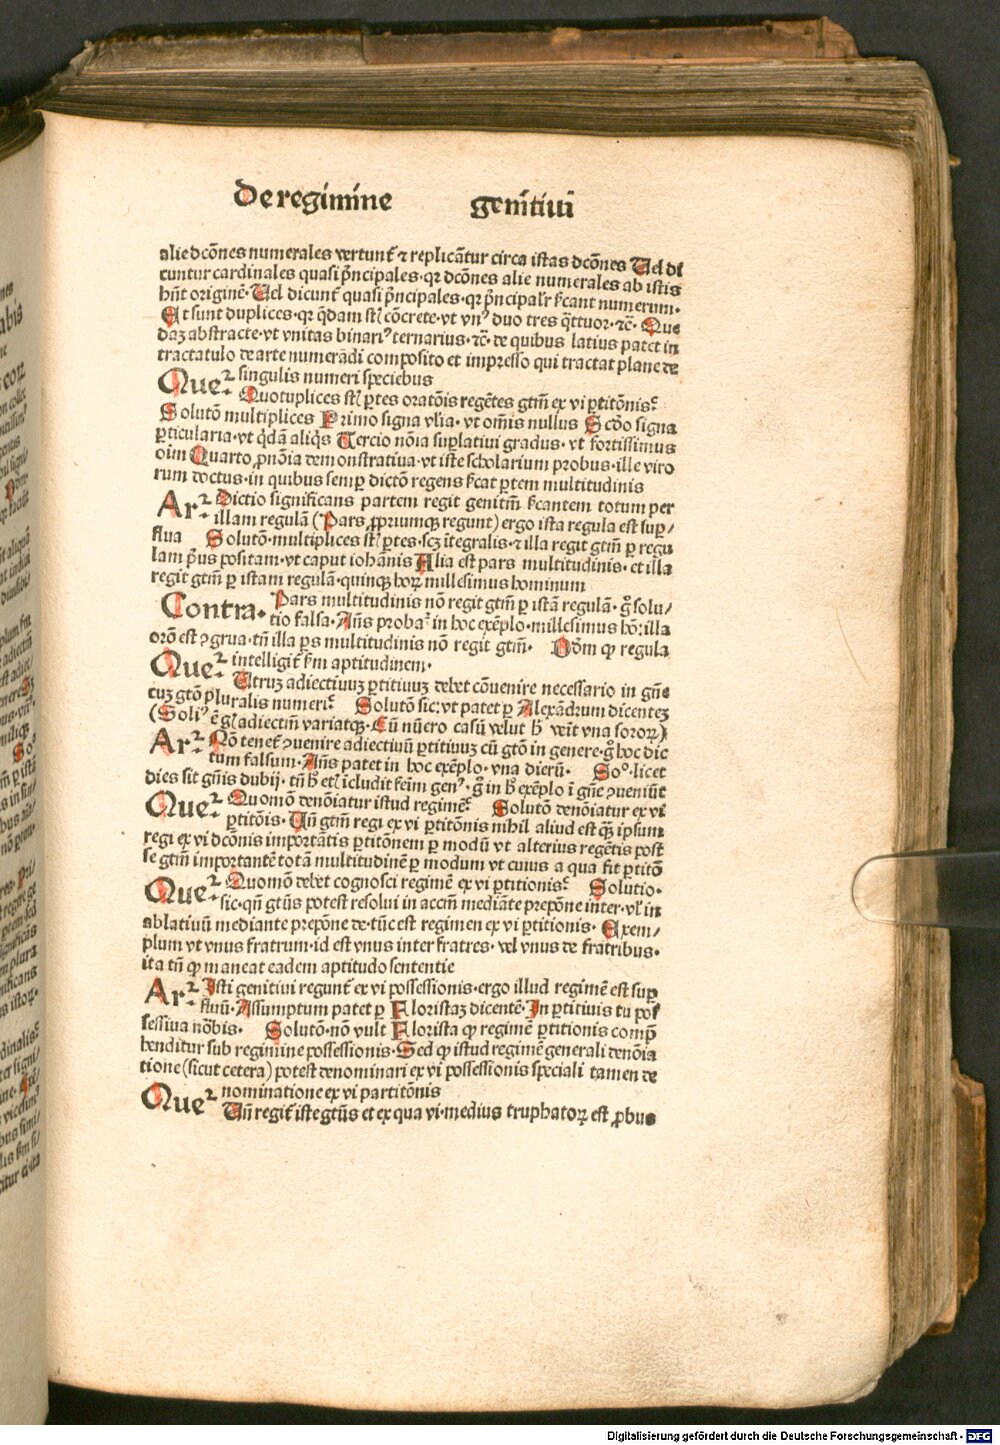 De regimine genitiui
alie dcōnes numerales vertunt̄ ⁊ replicātur circa istas dcōnes Uel di
cuntur cardinales quasi p̄ncipales·qꝛ dcōnes alie numerales ab istis
hn̄t originē·Uel dicunt̄ quasi p̄ncipales·qꝛ p̄ncipalr̄ sc̄ant numerum·
Et sunt duplices·qꝛ q̄dam st̄ cōcrete·vt vnꝰ duo tres q̄ttuor·ꝛc̄· Que
daꝫ abstracte·vt vnitas binariꝰ ternarius·ꝛc̄·de quibus latius patet in
tractatulo de arte numerādi composito et impresso qui tractat plane de
Queꝛ̄ singulis numeri speciebus
Quotuplices st̄ ꝑtes oratōis regētes gtm̄ ex vi ꝑtitōnis?
Solutō multiplices Primo signa vl̄ia·vt om̄is nullus Scd̄o signa
ꝑticularia·vt q̄dā aliq̄s Tercio nōia suꝑlatiui gradus·vt fortissimus
oīm Quarto ꝓnōia demonstratiua·vt iste scholarium probus·ille viro
rum doctus·in quibus semꝑ dictō regens sc̄at ꝑtem multitudinis
Arꝛ̄ Dictio significans partem regit genitm̄ sc̄antem totum per
illam regulā (Pars ꝓpriumqꝫ regunt) ergo ista regula est suꝑ/
flua Solutō·multiplices st̄ ꝑtes·scꝫ itegralis·⁊ illa regit gtm̄ ꝑ regu
lam p̄us positam·vt caput iohānis Alia est pars multitudinis·et illa
regit gtm̄ ꝑ istam regulā·quinqꝫ hoꝝ millesimus hominum
Contra· Pars multitudinis nō regit gtm̄ ꝑ istā regulā·gͦ solu/
tio falsa·Añs probaꝛ in hoc exēplo·millesimus hoīm:illa
orō est ꝯgrua·tn̄ illa ꝑs multitudinis nō regit gtm̄· Dd̄m ꝙ regula
Queꝛ̄ intelligit̄ sm̄ aptitudinem·
Utruꝫ adiectiuuꝫ ꝑtitiuuꝫ debet cōuenire necessario in gn̄e
cuꝫ gtō pluralis numeri? Solutō sic:vt patet ꝑ Alexādrum dicenteꝫ
(Soliꝰ ē gl̄ adiectm̄ variatqꝫ·Cū nūero casū velut h̄ veīt vna soroꝝ)
Arꝛ̄ Nō tenet̄ ꝯuenire adiectiuū ꝑtitiuuꝫ cū gtō in genere·gͦ hoc dic
tum falsum·Añs patet in hoc exēplo·vna dierū· Soͦ·licet
dies sit gn̄is dubij·tn̄ h̄ et̄ īcludit feīm genꝰ·gͦ in h̄ exēplo ī gn̄e ꝯueniūt
Queꝛ̄ Quomō denōiatur istud regimē? Solutō denōiatur ex vi
ꝑtitōis·Un̄ gtm̄ regi ex vi ꝑtitōnis nihil aliud est qꝫ̄ ipsum
regi ex vi dcōnis importātis ꝑtitōnem ꝑ modū vt alterius regētis post
se gtm̄ importantē totā multitudinē ꝑ modum vt cuius a qua fit ꝑtitō
Queꝛ̄ Quomō debet cognosci regimē ex vi ꝑtitionis? Solutio·
sic·qn̄ gtūs potest resolui in accm̄ mediāte prepōne inter·vl̄ in
ablatiuū mediante prepōne de·tūc est regimen ex vi ꝑtitionis· Exem/
plum vt vnus fratrum·id est vnus inter fratres·vel vnus de fratribus·
ita tn̄ ꝙ maneat eadem aptitudo sententie
Arꝛ̄ Isti genitiui regunt̄ ex vi possessionis·ergo illud regimē est suꝑ
fluū·Assumptum patet ꝑ Floristaꝫ dicentē·In ꝑtitiuis tu pos
sessiua nōbis· Solutō·nō vult Florista ꝙ regimē ꝑtitionis comp̄
henditur sub regimine possessionis·Sed ꝙ istud regimē generali denōia
tione (sicut cetera) potest denominari ex vi possessionis speciali tamen de
Queꝛ̄ nominatione ex vi partitōnis
Un̄ regit̄ iste gtūs et ex qua vi·medius truphatoꝝ est ꝓbus
Digitalisierung gefördert durch die Deutsche Forschungsgemeinschaft - DFG